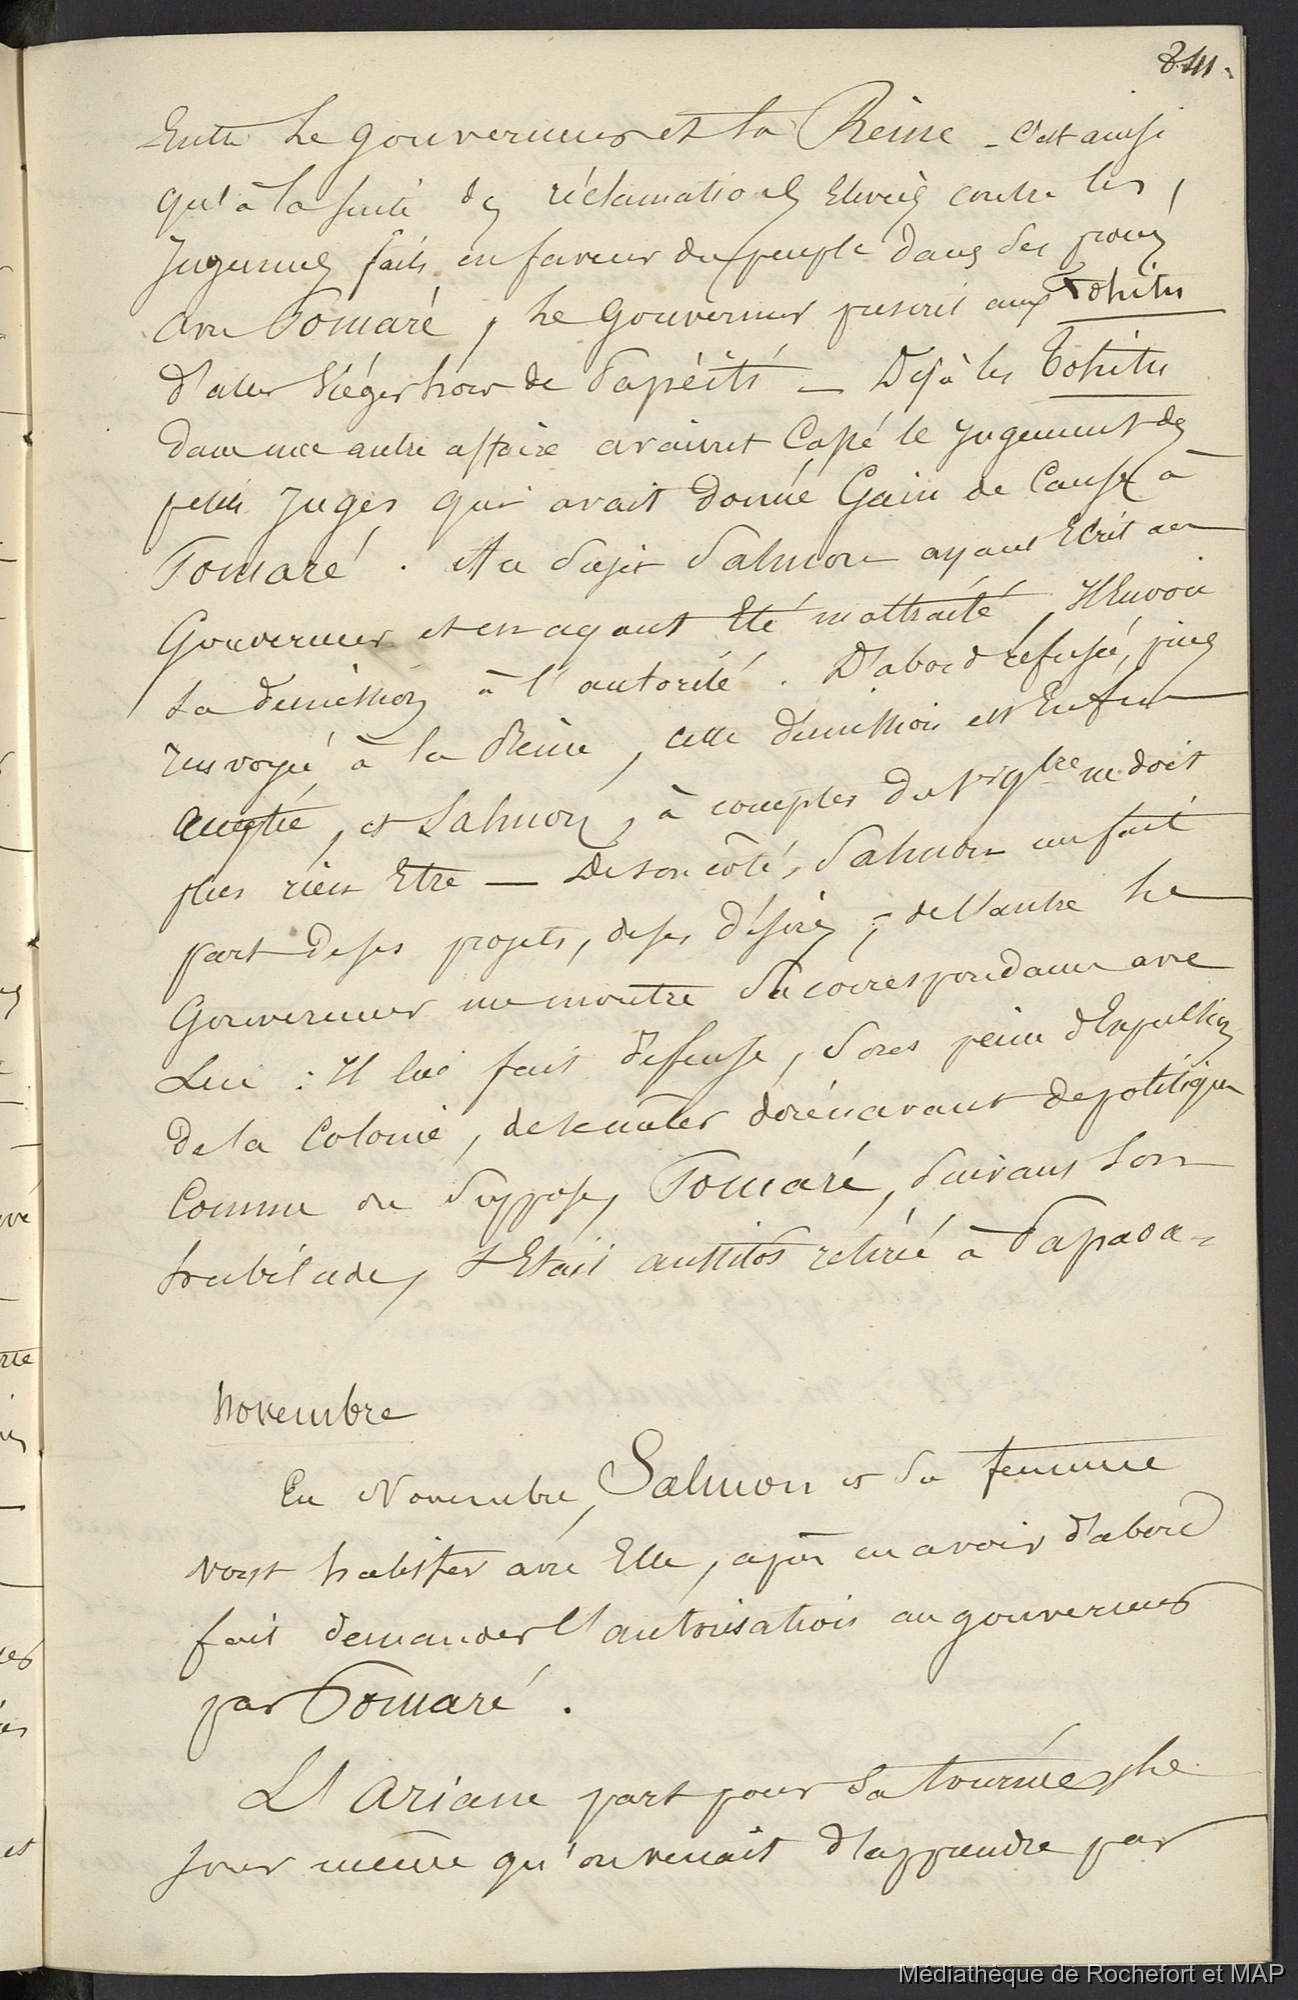 341.
Entre le gouverneur et la Reine - c'est ainsi
qu'à la suite des réclamations élevées contre les
Jugements faits en faveur du peuple dans ses procès
avec Pomaré, le Gouverneur prescrit aux Tohitu
d'aller siéger hors de Papéïti - Déjà les Tohitu
dans une autre affaire avaient Cassé le Jugement des
petits Juges qui avait donné Gain de Cause à
Pomaré. A ce sujet Salmon ayant Ecrit au
Gouverneur et en ayant Eté maltraité, Il Envoie
sa démission à l'autorité. D'abord refusée, puis
renvoyée à la Reine, cette démission est Enfin
acceptée, et Salmon, à compter du 1er 9bre ne doit
plus rien Etre — De son côté, Salmon me fait
part de ses projets, de ses désirs ; de l'autre le
Gouverneur me montre sa correspondance avec
Lui : Il lui fait défense, sous peine d'Expulsion
de la Colonie, de se mêler dorénavant de politique
Comme on suppose, Pomaré, suivant son
habitude, s'Etait aussitôt retirée à Papaoa -
Novembre
En Novembre, Salmon et sa femme
vont habiter avec Elle, après en avoir d'abord
fait demander l'autorisation au gouverneur
par Pomaré.
L'Ariane part pour sa tournée, le
Jour même qu'on venait d'apprendre par
Médiathèque de Rochefort et MAP